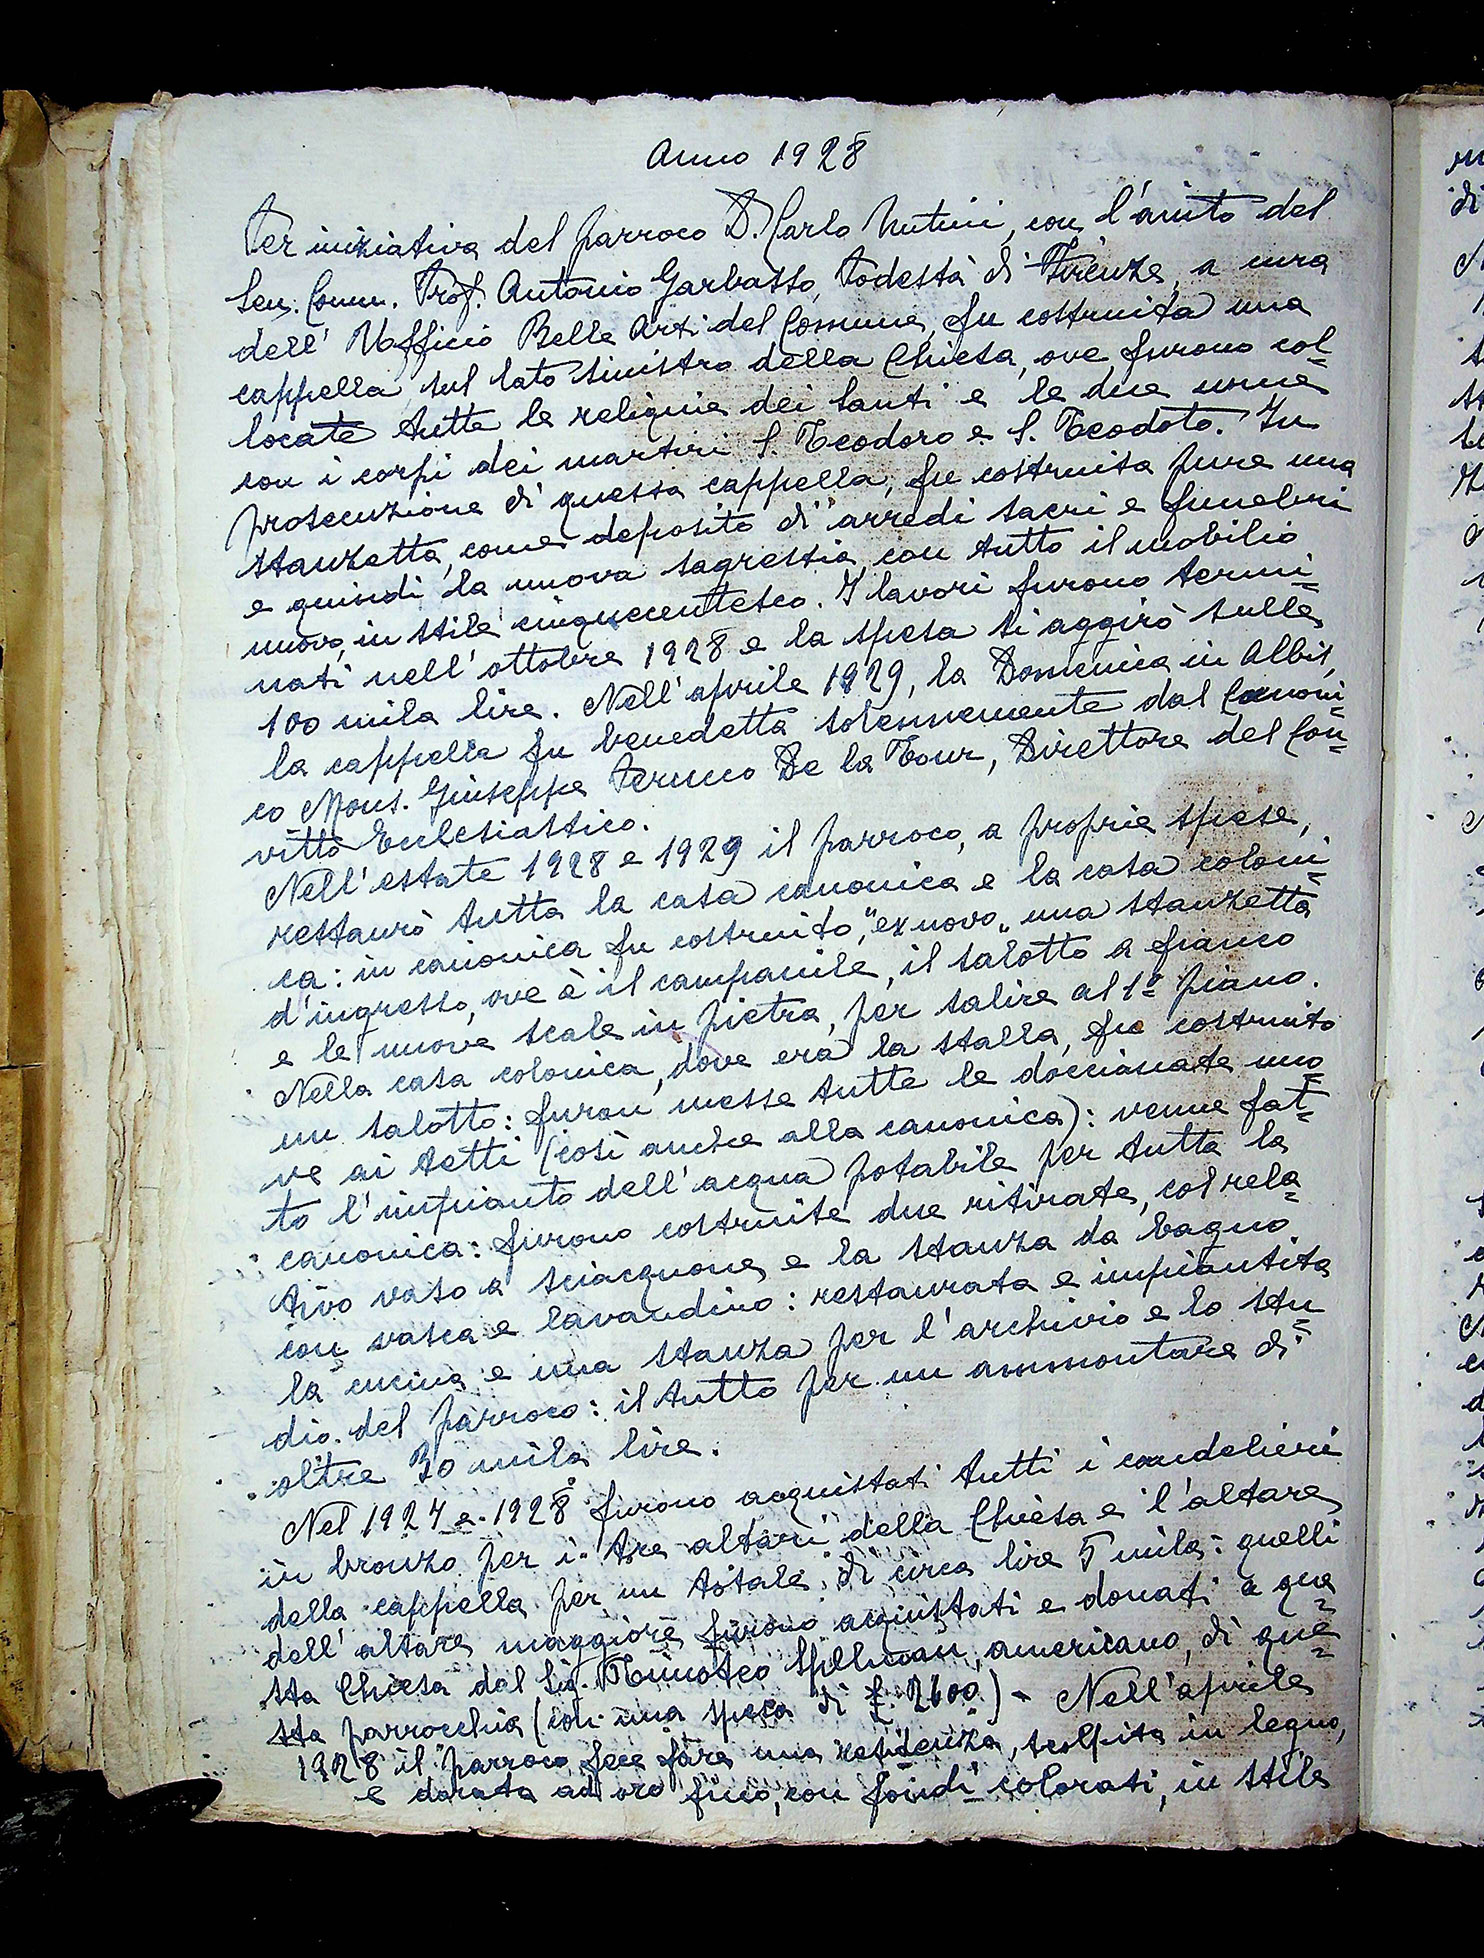 Anno 1928
Per iniziativa del parroco D. Carlo Nutini, con l'aiuto del
Sen. Comm. Prof. Antonio Garbasso, Podestà di Firenze, a cura
dell' Ufficio Belle Arti del Comune, fu costruita una
cappella, sul lato sinistro della Chiesa, ove furono col=
locate tutte le reliquie dei Santi e le due urne
con i corpi dei martiri S. Teodoro e S. Teodoto. In
prosecuzione di questa cappella, fu costruita pure una
stanzetta, come deposito di arredi sacri e funebri
e quindi la nuova sagrestia, con tutto il mobilio
nuovo, in stile cinquecentesco. I lavori furono termi=
nati nell' ottobre 1928 e la spesa si aggirò sulle
100 mila lire. Nell' aprile 1929, la Domenica in Albis,
la cappella fu benedetta solennemente dal Canoni=
co Mons. Giuseppe De la Tour, Direttore del Con=
vitto Ecclesiastico.
Nell' estate 1928 e 1929 il parroco, a proprie spese,
restaurò tutta la casa canonica e la casa coloni=
ca: in canonica fu costruito, "ex novo„ una stanzetta
d'ingresso, ove è il campanile, il salotto a fianco
e le nuove scale in pietra, per salire al 1º piano.
Nella casa colonica, dove era la stalla, fu costruito
un salotto: furon messe tutte le docciate nuo=
ve ai tetti (così anche alla canonica): venne fat=
to l'impianto dell' acqua potabile per tutta la
canonica: furono costruite due ritirate, col rela=
tivo vaso a sciacquone, e la stanza da bagno
con vasca e lavandino: restaurata e impiantita
la cucina e una stanza per l'archivio e lo stu=
dio del parroco: il tutto per un ammontare di
oltre 30 mila lire.
Nel 1927 e 1928 furono acquistati tutti i candelieri
in bronzo per i tre altari della Chiesa e l'altare
della cappella per un totale di circa lire 5 mila: quelli
dell' altare maggiore furono acquistati e donati a que=
sta Chiesa dal Sig. Timoteo Spillman, americano, di que=
sta parrocchia (con una spesa di £ 2600) - Nell' aprile
1928 il parroco fece fare una residenza, scolpita in legno,
e dorata ad oro fino, con fondi colorati, in stile